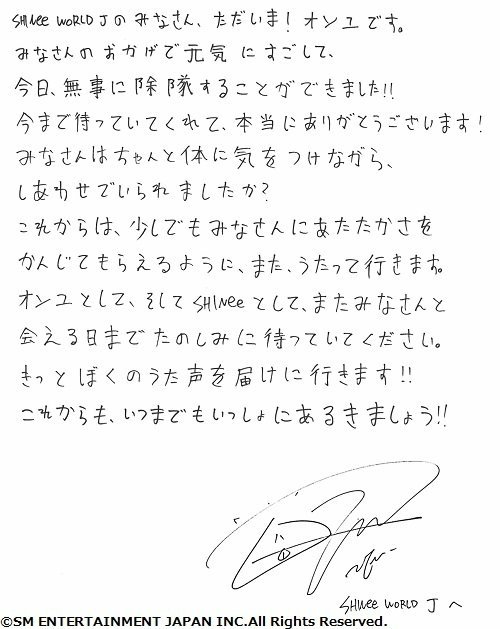 SHINee WORLD Jのみなさん、ただいま！オンユです。
みなさんのおかげで元気にすごして、
今日、無事に除隊することができました!!
今まで待っていてくれて、本当にありがとうございます！
みなさんはちゃんと体に気をつけながら、
しあわせでいられましたか？
これからは、少しでもみなさんにあたたかさを
かんじてもらえるように、また、うたって行きます。
オンユとして、そしてSHINeeとして、またみなさんと
会える日までたのしみに待っていてください。
きっとぼくのうた声を届けに行きます!!
これからも、いつまでもいっしょにあるきましょう!!
SHINee WORLD J へ
©SM ENTERTAINMENT JAPAN INC.All Rights Reserved.